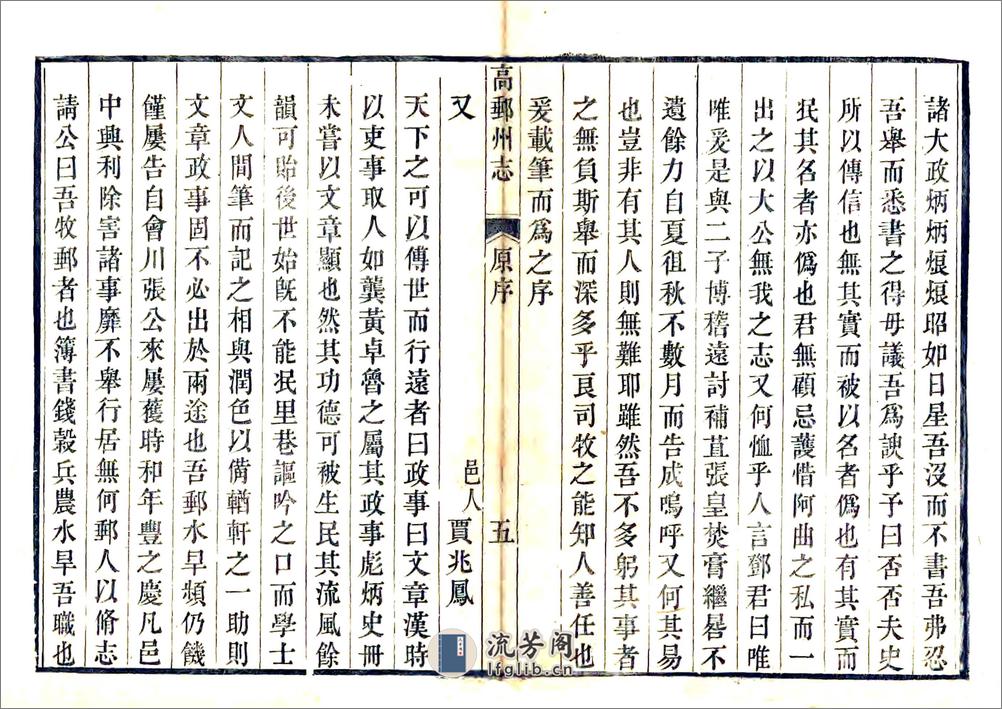 諸大政炳炳烺烺昭如日星吾沒而不書吾弗忍
吾舉而悉書之得毋議吾爲諛乎予曰否否夫史
所以傳信也無其實而被以名者僞也有其實而
泯其名者亦僞也君無顧忌護惜阿曲之私而一
出之以大公無我之志又何恤乎人言鄧君曰唯
唯爰是與二子博稽遠討補苴張皇焚膏繼晷不
遺餘力自夏徂秋不數月而告成嗚呼又何其易
也豈非有其人則無難耶雖然吾不多躬其事者
之無負斯舉而深多乎良司牧之能知人善任也
爰載筆而爲之序
高郵州志
原序
五
又
邑人 賈兆鳳
天下之可以傳世而行遠者曰政事曰文章漢時
以吏事取人如龔黃卓魯之屬其政事彪炳史冊
未嘗以文章顯也然其功德可被生民其流風餘
韻可貽後世始旣不能泯里巷謳吟之口而學士
文人間筆而記之相與潤色以備輶軒之一助則
文章政事固不必出於兩途也吾郵水旱頻仍饑
饉屢告自會川張公來屢獲時和年豐之慶凡邑
中興利除害諸事靡不舉行居無何郵人以脩志
請公曰吾牧郵者也簿書錢穀兵農水旱吾職也
流芳阁
lfglib.cn